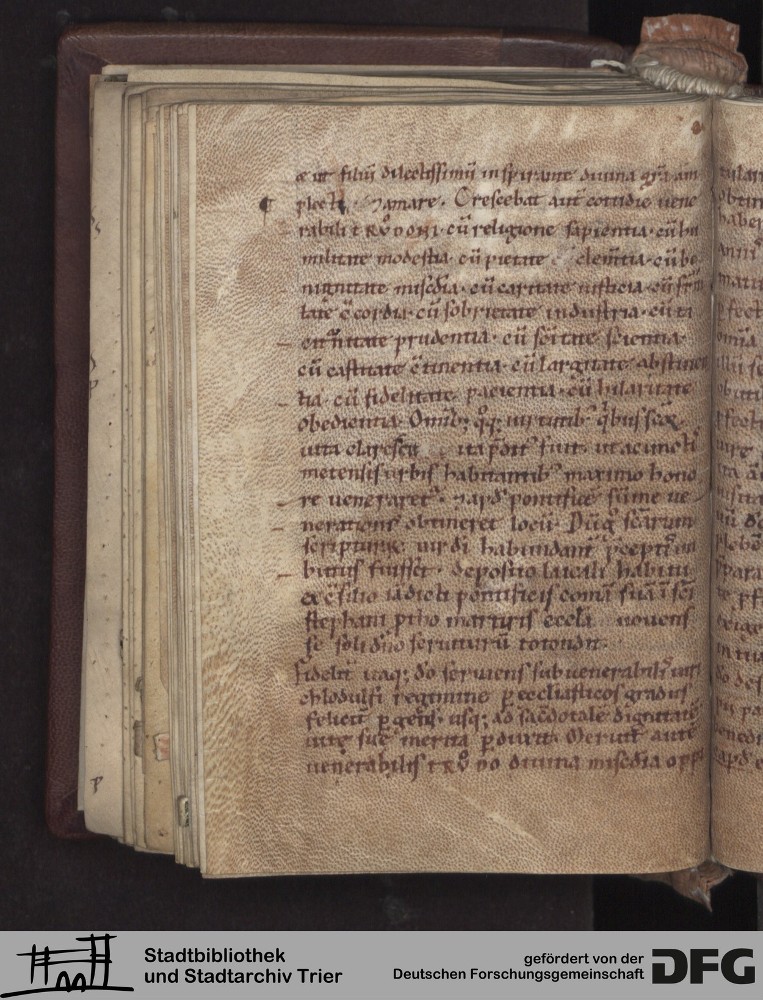 ę ut filiū dilectissimū inspirante diuina grā am
plecti & amare. Crescebat aut̄ cottidie uene
rabili TRVDONI. cū religione sapientia. cū hu
militate modestia. cū pietate clem̄tia. cū be
nignitate misc̄dia. cū caritate iusticia. cū
late c̄cordia. cū sobrietate industria. cū ta
citͣnitate prudentia. cū sc̄itate scientia.
cū castitate c̄tinentia. cū largitate abstinen
tia. cū fidelitate pacientia. cū hilaritate
obedientia. Omīb; q̊q; uirtutib; q̇bus
uita clarescit ita p̄dit' fuit. ut a cunctis
metensis urbis habitantib; maximo hono
re ueneraret'. & apd' pontificē sūme ue
nerationis obtineret locū. Dūq; sc̄arum
scripturarū uir di habundant' p̄ceptis im
butus fuisset. deposito laicali habitu
ex c̄silio iādicti pontificis comā suā ī sc̄i
stephani ptho martyris eccła nouens
se soli dn̄o seruiturū totondit.
Fidelit' itaq; dō seruiens sub uenerabilis uiri
chlodulfi regimine p ecclīasticos gradus
felicit' pgens. usq; ad sac̄dotale dignitatē
uitę suę merita pduxit. Meruit autē
uenerabilis TRVDO diuina misc̄dia oppi
Stadtbibliothek
und Stadtarchiv Trier
gefördert von der
Deutschen Forschungsgemeinschaft
DFG